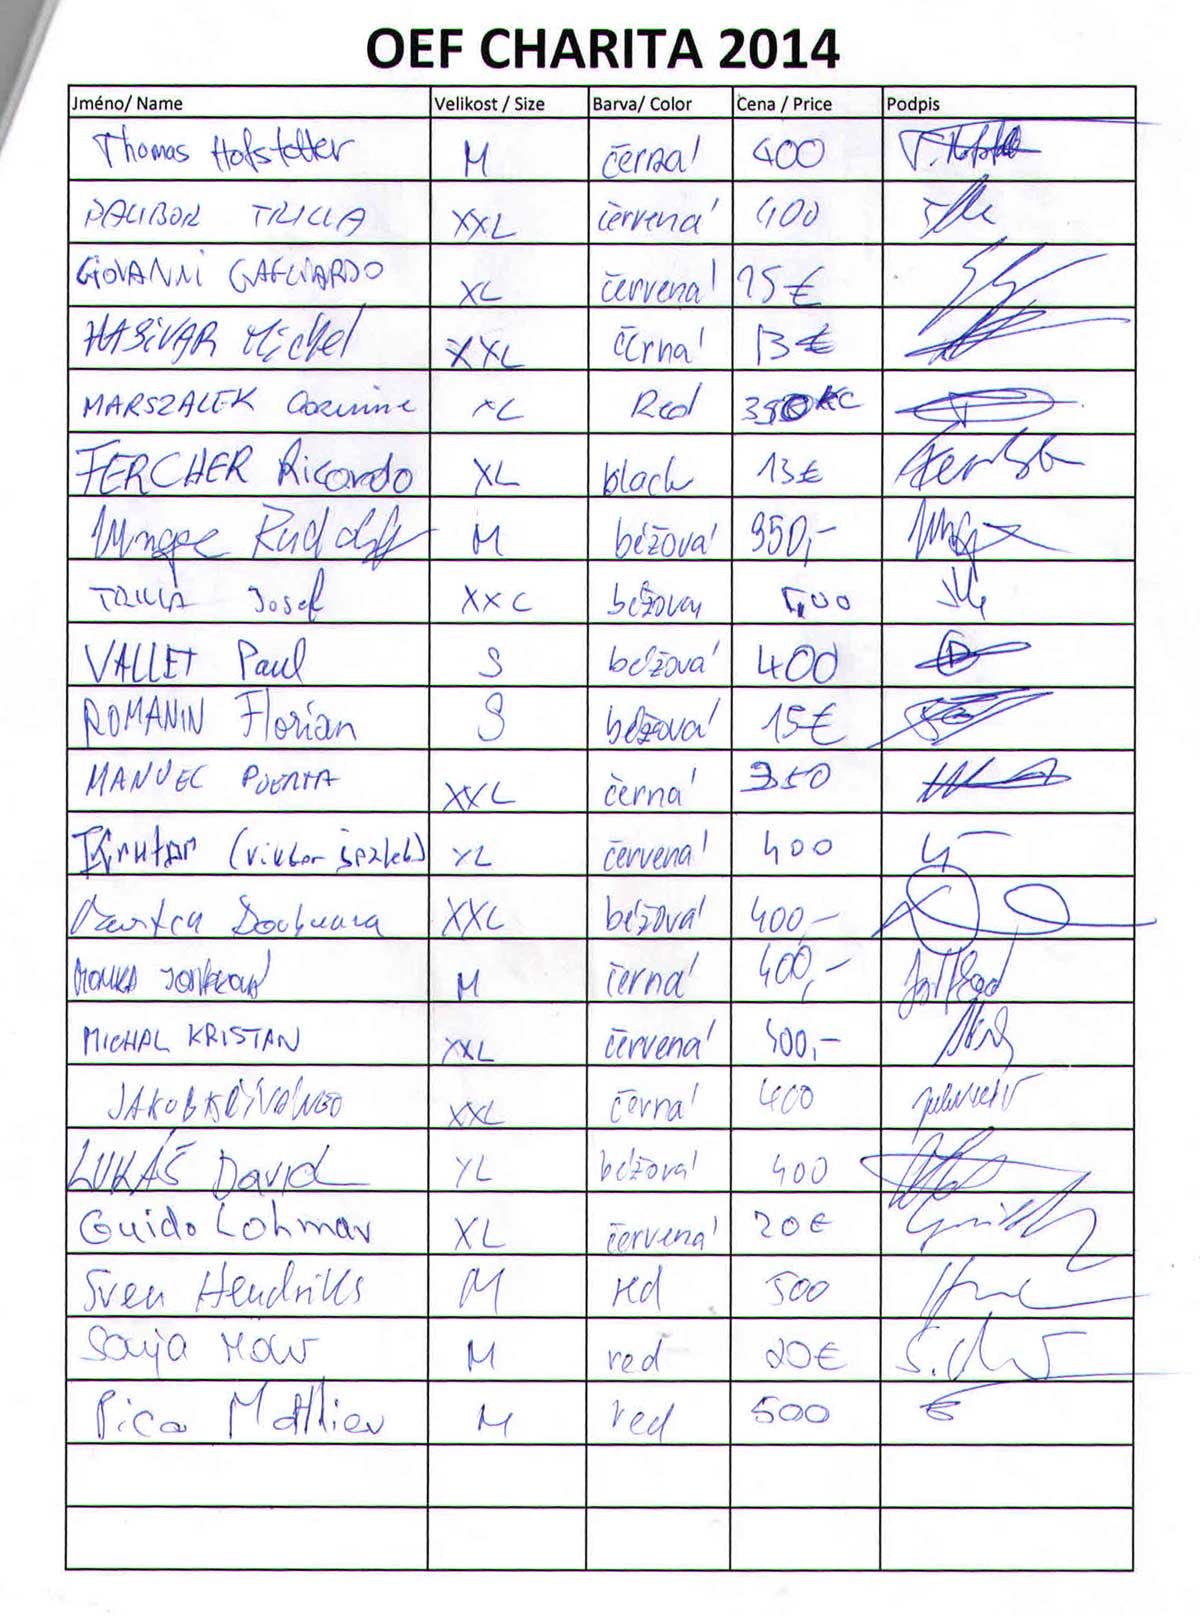 OEF CHARITA 2014
Jméno/ Name Velikost / Size Barva/ Color Cena / Price Podpis
Thomas Hofstetter M černá 400
DALIBOR TRILLA XXL červená 400
GIOVANNI GAGLIARDO XL červená 15€
Michel XXL černá 13€
MARSZALEK Corinne XL Red 350 KC
FERCHER Ricardo XL black 13€
Rudolf M béžová 350,-
TRILLA Josef XXL béžová
VALLET Paul S béžová 400
ROMANIN Florian S béžová 15€
MANUEL PUERTA XXL černá 350
Krutar (Viktor XL červená 400
XXL béžová 400,-
MONIKA M černá 400,-
MICHAL KRISTAN XXL červená 400,-
JAKUB XXL černá 400
LUKÁŠ David XL béžová 400
Guido Lohmar XL červená 20€
Sven Hendriks M red 500
Sonja M red 20€
Pica Mathieu M red 500 €